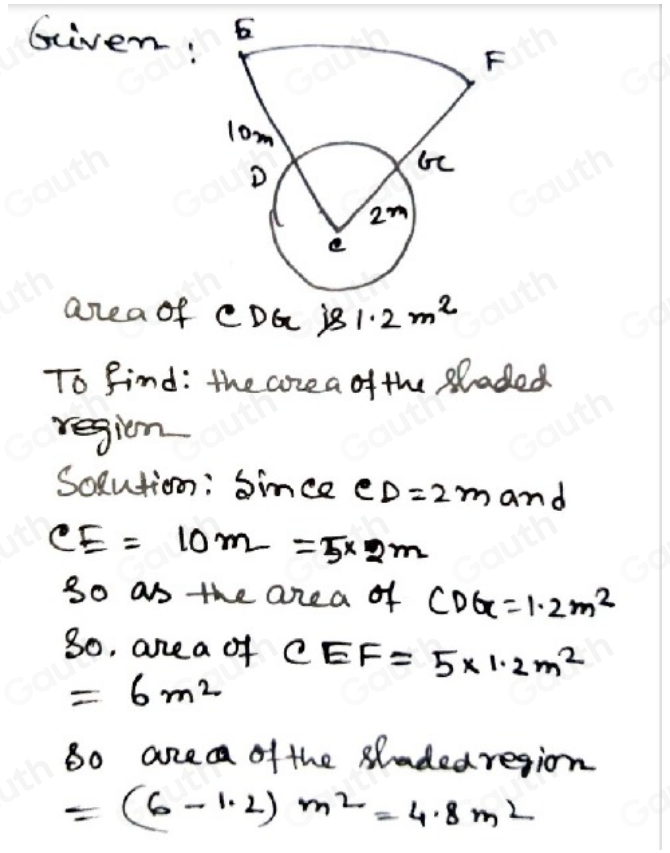 Given :
E
F
10m
D
G
2m
C
area of CDG is 1.2 m²
To find: the area of the shaded
region
Solution: Since CD = 2m and
CE = 10m = 5×2m
So as the area of CDG = 1.2m²
So, area of CEF = 5 x 1.2m²
= 6m²
So area of the shaded region
= (6 - 1.2) m² = 4.8 m²
Gauth